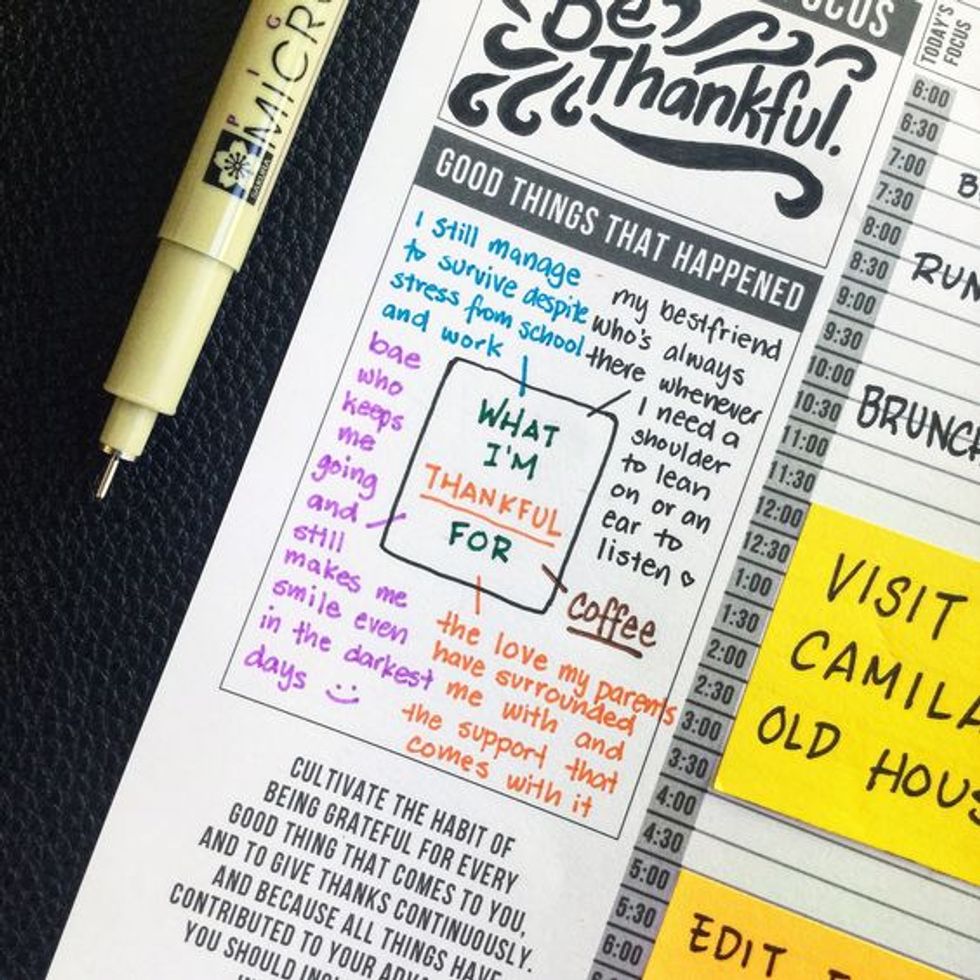 PIGMA
MICRO
SAKURA
FOCUS
Be
Thankful.
GOOD THINGS THAT HAPPENED
I still manage
to survive despite
stress from school
and work
my bestfriend
who's always
there whenever
I need a
shoulder
to lean
on or an
ear to
listen
bae
who
keeps
me
going
and
still
makes me
smile even
in the darkest
days
WHAT
I'M
THANKFUL
FOR
coffee
the love my parents
have surrounded
me with and
the support that
comes with it
CULTIVATE THE HABIT OF
BEING GRATEFUL FOR EVERY
GOOD THING THAT COMES TO YOU,
AND TO GIVE THANKS CONTINUOUSLY.
AND BECAUSE ALL THINGS HAVE
CONTRIBUTED TO YOUR
YOU SHOULD
TODAY'S
FOCUS
6:00
6:30
7:00
7:30
8:00
8:30 RUN
9:00
9:30
10:00
10:30 BRUNCH
11:00
11:30
12:00
12:30
1:00
1:30
2:00
2:30
3:00
3:30
4:00
4:30
5:00
5:30
6:00
VISIT
CAMILA
OLD HOUS
EDIT